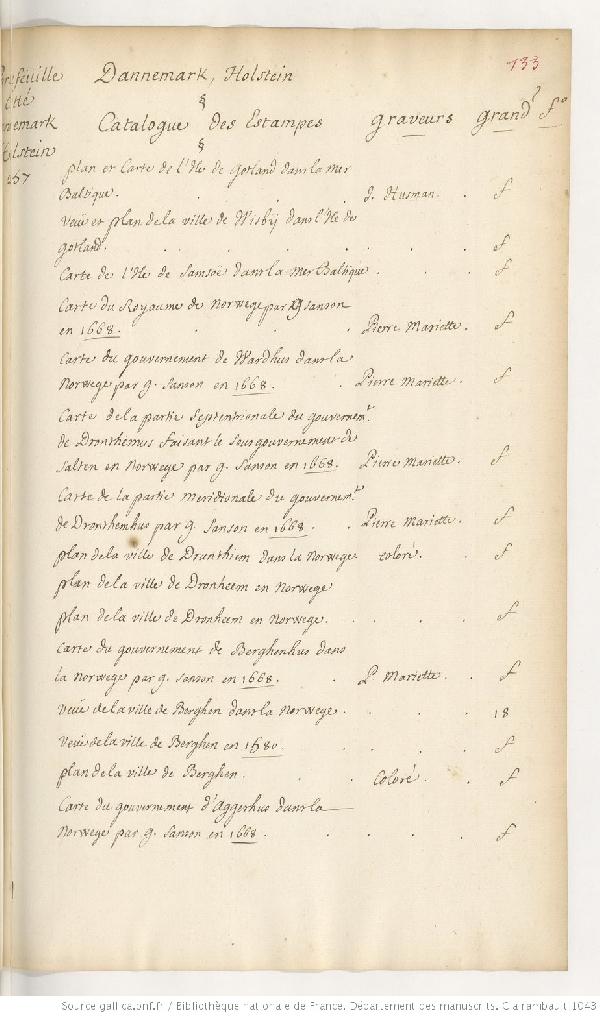 733
feuille
Dannemark, Holstein
§
Catalogue des Estampes graveurs grandr fo
§
plan et Carte de l'Ile de Gotland dans la Mer
Baltique. J. Husman. f
Veüe et plan de la ville de Wisbÿ dans l'Ile de
Gotland. f
Carte de l'Ile de Samsoë dans la Mer Baltique f
Carte du Royaume de Norwege par g Sanson
en 1668. Pierre Mariette. f
Carte du gouvernement de Wardhus dans la
Norwege par g. Sanson en 1668. Pierre Mariette. f
Carte de la partie Septentrionale du gouvernemt.
de Dronthemus faisant le Sousgouvernement de
Salten en Norwege par g. Sanson en 1668. Pierre Mariette. f
Carte de la partie meridionale du gouvernemt.
de Dronthemhus par g. Sanson en 1668. Pierre Mariette. f
plan de la ville de Dranthiem dans la Norwege coloré. f
plan de la ville de Dronheem en Norwege
plan de la ville de Dronheem en Norwege. f
Carte du gouvernement de Berghenhus dans
la Norwege par g. Sanson en 1668. P. Mariette. f
Veüe de la ville de Berghen dans la Norwege. 18
Veüe de la ville de Berghen en 1680. f
plan de la ville de Berghen. Coloré. f
Carte du gouvernement d'Aggerhus dans la
Norwege par g. Sanson en 1668. f
Source gallica.bnf.fr / Bibliothèque nationale de France. Département des manuscrits. Clairambault 1043